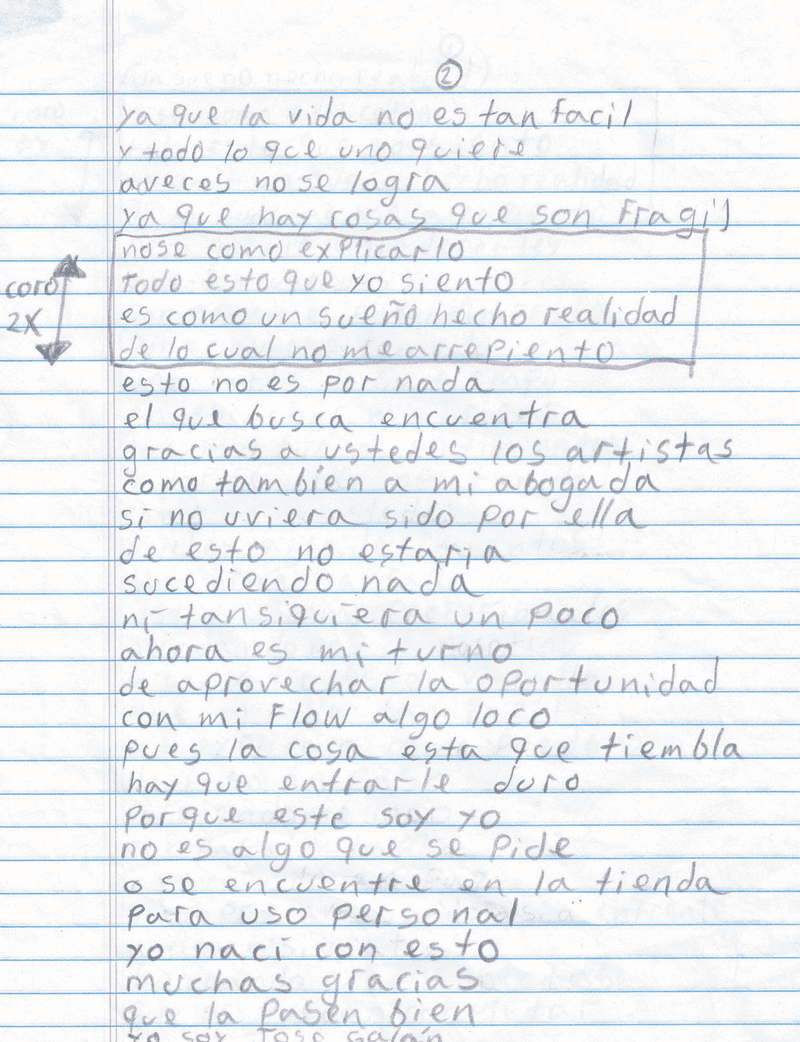 2
ya que la vida no es tan facil
y todo lo qce uno quiere
aveces no se logra
ya que hay cosas que son fragil
nose como explicarlo
todo esto que yo siento
coro
es como un sueño hecho realidad
2X
de lo cual no me arrepiento
esto no es por nada
el que busca encuentra
gracias a ustedes los artistas
como tambien a mi abogada
si no uviera sido por ella
de esto no estaria
sucediendo nada
ni tansiquiera un poco
ahora es mi turno
de aprovechar la oportunidad
con mi Flow algo loco
pues la cosa esta que tiembla
hay que entrarle duro
porque este soy yo
no es algo que se pide
o se encuentre en la tienda
para uso personal
yo naci con esto
muchas gracias
que la pasen bien
yo soy Jose Galán